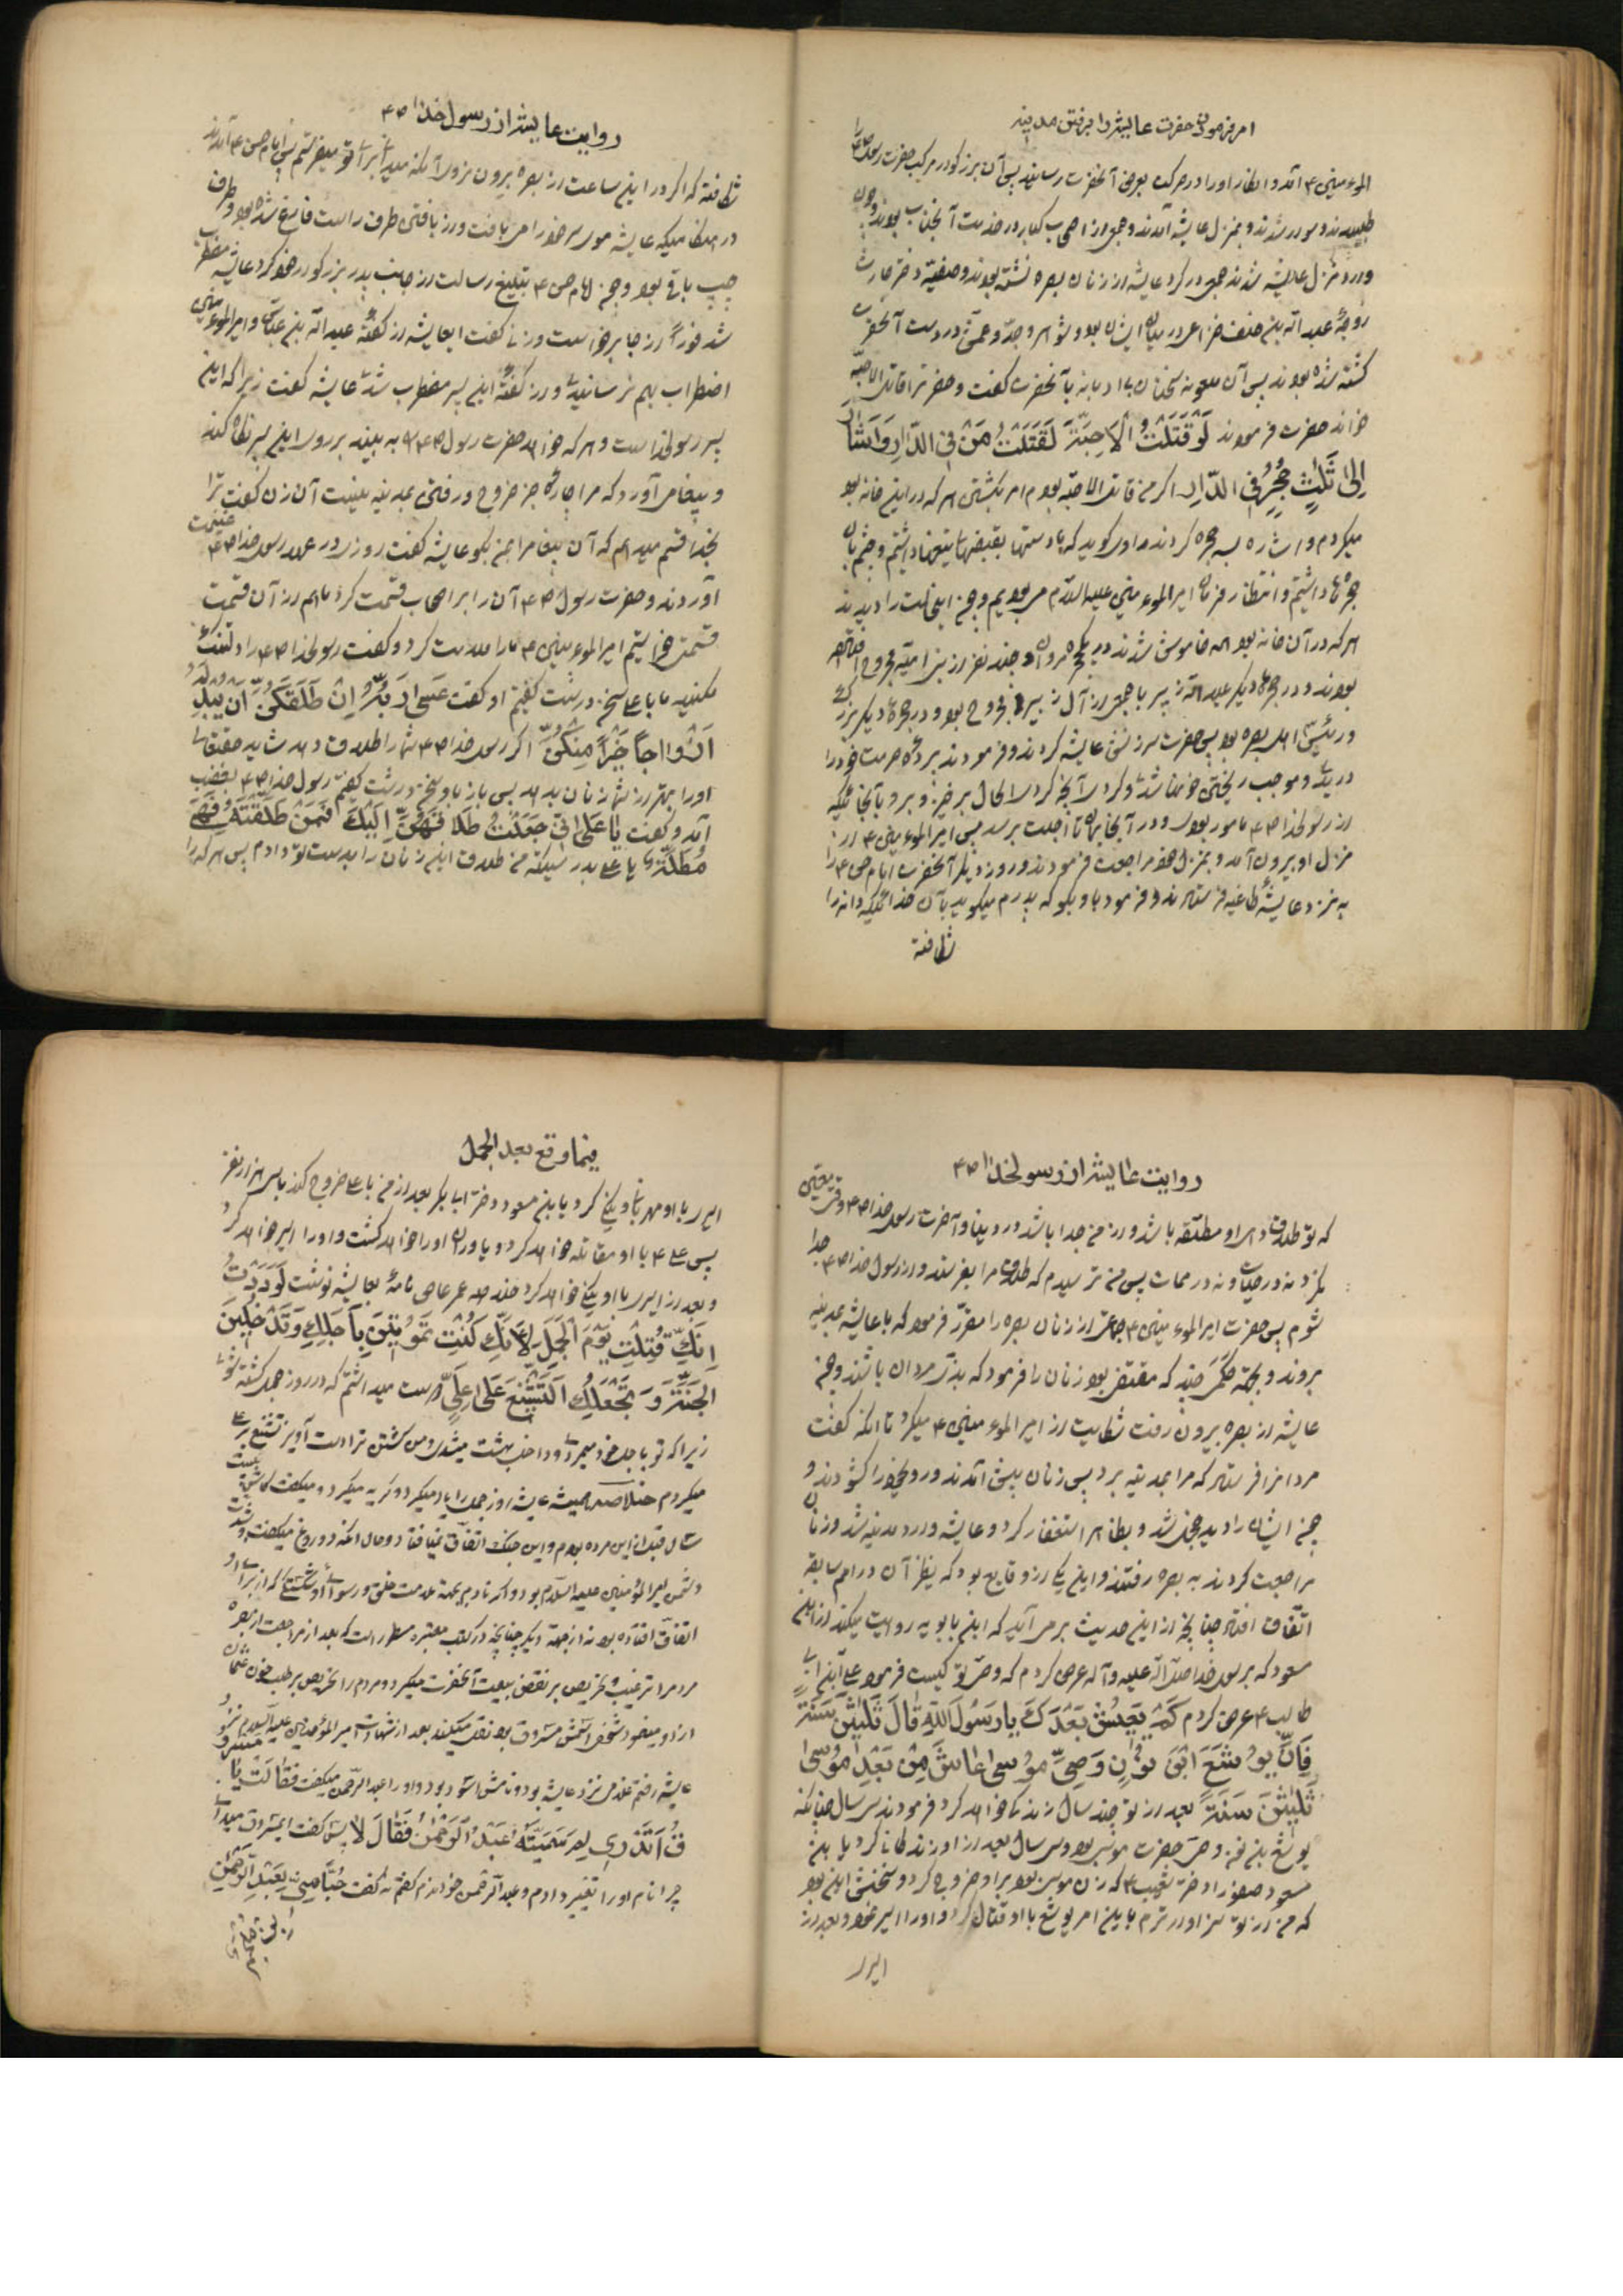 امر فرمودن حضرت عایشه را برفتن مدینه
المؤمنین ۴ آمد و انظار او را در حرکت بعرض آنحضرت رسانید پس آن بزرگوار مرکب حضرت رسول
طلبیدند و سوار شدند و بمنزل عایشه آمدند و جمعی از اصحاب کبار در خدمت آنجناب بودند و چون
وارد منزل عایشه شدند جمعی در گرد عایشه از زنان بصره نشسته بودند و صفیه دختر حارث
زوجهٔ عبد الله بن خلف خزاعی در میان ایشان بود و شوهر و جد و عمش در دست آنحضرت
کشته شده بودند پس آن ملعونه سخنان بی ادبانه بآنحضرت گفت و حضرت را قاتل الاحبه
خواند حضرت فرمودند لَوْ قَتَلْتُ الْاَحِبَّةَ لَقَتَلْتُ مَنْ فِی الدّارِ وَاَشارَ
اِلیٰ ثَلٰثِ حُجَرٍ فِی الدّارِ اگر من قاتل الاحبه بودم امر بکشتن هر که در این خانه بود
میکردم و اشاره بسه حجره کردند راوی گوید که ما دستها بقبضهای تیغها داشتیم و چشم بان
حجره ها داشتیم و انتظار فرمان امیر المؤمنین علیه السلام می بودیم و چون این حالت را دیدند
هر که در آن خانه بود همه خاموش شدند در یکحجره مروان و چند نفر از بنی امیه مجروح افتاده
بودند و در حجره دیگر عبد الله زبیر با جمعی از آل زبیر مجروح بود و در حجره دیگر بزرگ
و رئیس اهل بصره بود پس حضرت سرزنش عایشه کردند و فرمودند پردهٔ حرمت خود را
دریدی و موجب ریختن خونها شدی و کردی آنچه کردی الحال برخیز و برو بآنجائیکه
از رسولخدا ص۴ مامور بودی و در آنجا بمان تا اجلت برسد پس امیر المؤمنین ۴ از
منزل او بیرون آمد و بمنزل خود مراجعت فرمودند و روز دیگر آنحضرت امام حسن ۴ را
به نزد عایشهٔ طاغیه فرستادند و فرمود باو بگو که پدرم میگوید بآن خدائیکه دانه را
شکافته
روایت عایشه از رسول خدا ص۴
شکافته که اگر در این ساعت از بصره بیرون نروی آنکه میدانی برای تو میفرستم پس امام حسن ۴ آمدند
در هنگامیکه عایشه موی سر خود را می بافت و از بافتن طرف راست فارغ شده بود و طرف
چپ باقی بود و چون امام حسن ۴ تبلیغ رسالت از جانب پدر بزرگوار خود کرد عایشه مضطرب
شد فوراً از جا برخواست و زنی گفت ایعایشه از گفتهٔ عبد الله بن عباس و امیر المؤمنین
اضطراب بهم نرسانیدی و از گفتهٔ این پسر مضطرب شدی عایشه گفت زیرا که این
پسر رسولخداست و هر که خواهد حضرت رسول ص۴ را به بیند بر روی این پسر نگاه کند
و پیغامی آورده که مرا چارهٔ جز خروج و رفتن بمدینه نیست آن زن گفت ترا
بخدا قسم میدهم که آن پیغام را بمن بگو عایشه گفت روزی در عهد رسول خدا ص۴ غنیمت
آوردند و حضرت رسول ص۴ آن را بر اصحاب قسمت کرد ما هم از آن قسمت
قسمت خواستیم امیر المؤمنین ۴ ما را ملامت کرد و گفت رسولخدا ص۴ را دلتنگ
مکنید ما با علی سخن درشت گفتیم او گفت عَسیٰ رَبُّهُ اِنْ طَلَّقَکُنَّ اَنْ یُبْدِلَهُ
اَزْواجاً خَیْراً مِنْکُنَّ اگر رسول خدا ص۴ شما را طلاق دهد شاید حقتعالی
او را بهتر از شما زنان بدهد پس باز باو سخن درشت گفتیم رسول خدا ص۴ بغضب
آمد و گفت یا عَلی اِنّی جَعَلْتُ طَلاقَهُنَّ اِلَیْکَ فَمَنْ طَلَّقْتَهٰ فَهِیَ
مُطَلَّقَةٌ یا علی بدرستیکه من طلاق این زنان را بدست تو دادم پس هر که را
روایت عایشه از رسولخدا ص۴
که تو طلاق دهی او مطلقه باشد و از من جدا باشد در دنیا و آخرت رسول خدا ص۴ وقت تعیین
نکرد نه در حیات و نه در ممات پس من ترسیدم که طلاق مرا بفرستد و از رسول خدا ص۴ جدا
شوم پس حضرت امیر المؤمنین ۴ جماعتی از زنان بصره را مقرر فرمود که با عایشه بمدینه
بروند و بجهة حکمی چند که مقتضی بود زنان را فرمود که بزی مردان باشند و چون
عایشه از بصره بیرون رفت شکایت از امیر المؤمنین ۴ میکرد تا آنکه گفت
مردانرا فرستاد که مرا بمدینه برد پس زنان پیش آمدند و روی خود را گشودند و
چون ایشان را دید خجل شد و بظاهر استغفار کرد و عایشه وارد مدینه شد و زنان
مراجعت کردند به بصره رفتند و این یکی از وقایع بود که نظیر آن در امم سابقه
اتفاق افتاد چنانچه از این حدیث بر می آید که ابن بابویه روایت میکند از ابن
مسعود که برسول خدا صلی الله علیه و آله عرض کردم که وصی تو کیست فرمود علی ابن ابی
طالب ۴ عرض کردم کَمْ یَعیشُ بَعْدَکَ یا رَسُولَ اللهِ قالَ ثَلٰثینَ سَنَةً
فَاِنَّ یُوشَعَ ابْنَ نُونٍ وَصِیَّ مُوسیٰ عاشَ مِنْ بَعْدِ مُوسیٰ
ثَلٰثینَ سَنَةً بعد از تو چند سال زندگی خواهد کرد فرمودند سی سال چنانکه
یوشع بن نون وصی حضرت موسی بود و سی سال بعد از او زندگانی کرد یا بن
مسعود صفورا دختر شعیب ۴ که زن موسی بود بر او خروج کرد و سخنش این بود
که من از تو سزاوارترم باین امر یوشع با او قتال کرد و او را اسیر نمود و بعد از
اسیری
فیما وقع بعد الجمل
اسیری با او مهربانی و نیکی کرد یا بن مسعود دختر ابا بکر بعد از من با علی خروج کند با سی هزار نفر
پس علی ۴ با او مقاتله خواهد کرد و یاوران او را خواهد کشت و او را اسیر خواهد کرد
و بعد از اسیری با او نیکی خواهد کرد عمر عاص نامهٔ بعایشه نوشت لَوَدِدْتُ
اَنَّکِ قُتِلْتِ یَوْمَ الْجَمَلِ لِاَنَّکِ کُنْتِ تَمُوتینَ بِاَجَلِکِ وَتَدْخُلینَ
الْجَنَّةَ وَ نَجْعَلُکِ اَلتَّشْنیعَ عَلیٰ عَلِیٍّ دوست میداشتم که در روز جمل کشته شوی
زیرا که تو باجل خود میمردی و داخل بهشت میشدی و من کشتن ترا دست آویز تشنیع بر علی
میکردم خلاصه همیشه عایشه روز جمل را یاد میکرد و گریه میکرد و میگفت کاش بیست
سال قبل از این مرده بودم و این جنک اتفاق نمیافتاد و حال آنکه دروغ میگفت و شدت
دشمن امیر المؤمنین علیه السلام بود و اگر نادم بجهة ملامت خلق و رسوائی و شکستی که از برای او
اتفاق افتاده بود نه از جهة دیگر چنانچه در کتب معتبره مسطور است که بعد از مراجعت از بصره
مردم را ترغیب و تحریص بر نقض بیعت آنحضرت میکرد و مردم را تحریص بر طلب خون عثمان
عایشه رفتم غلامی نزد عایشه بود و نامش اسود بود و او را عبد الرحمن میگفت فَقالَتْ یا
اَتَدْری لِمَ سَمَّیْتُهُ عَبْدَ الرَّحْمٰنِ فَقالَ لا پس گفت ای مسروق میدانی
چرا نام او را تغییر دادم و عبد الرحمن خواندم گفتم نه گفت حُبّاً مِنّی لِعَبْدِ الرَّحْمٰنِ